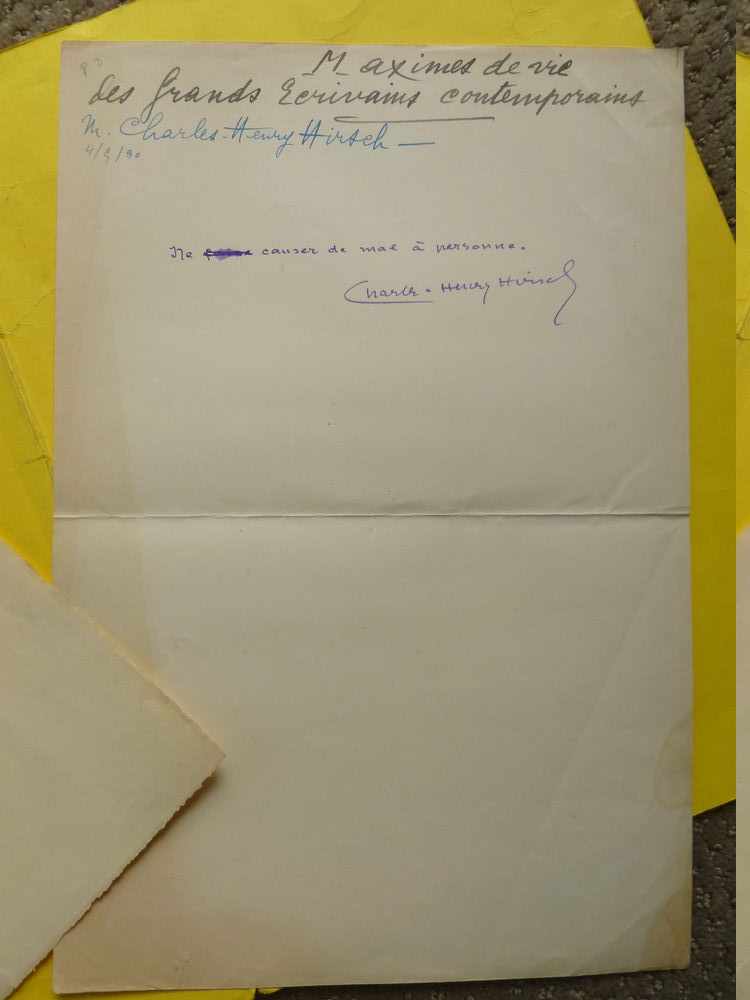 Maximes de vie
des Grands Ecrivains contemporains
M. Charles-Henry Hirsch —
4/5/30
Ne causer de mal à personne.
Charles-Henry Hirsch